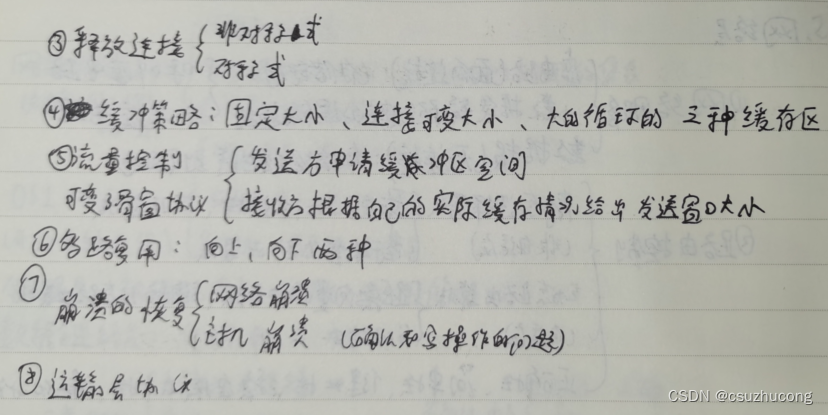 ③释放连接 非对称式
对称式
④缓冲策略：固定大小、连接可变大小、大的循环的 三种缓存区
⑤流量控制 发送方申请缓冲区空间
可变滑窗协议 接收方根据自己的实际缓存情况给出发送窗口大小
⑥多路复用：向上、向下两种
⑦
崩溃的恢复 网络崩溃
主机崩溃 (确认和写操作的问题)
⑧运输层协议
CSDN @csuzhucong